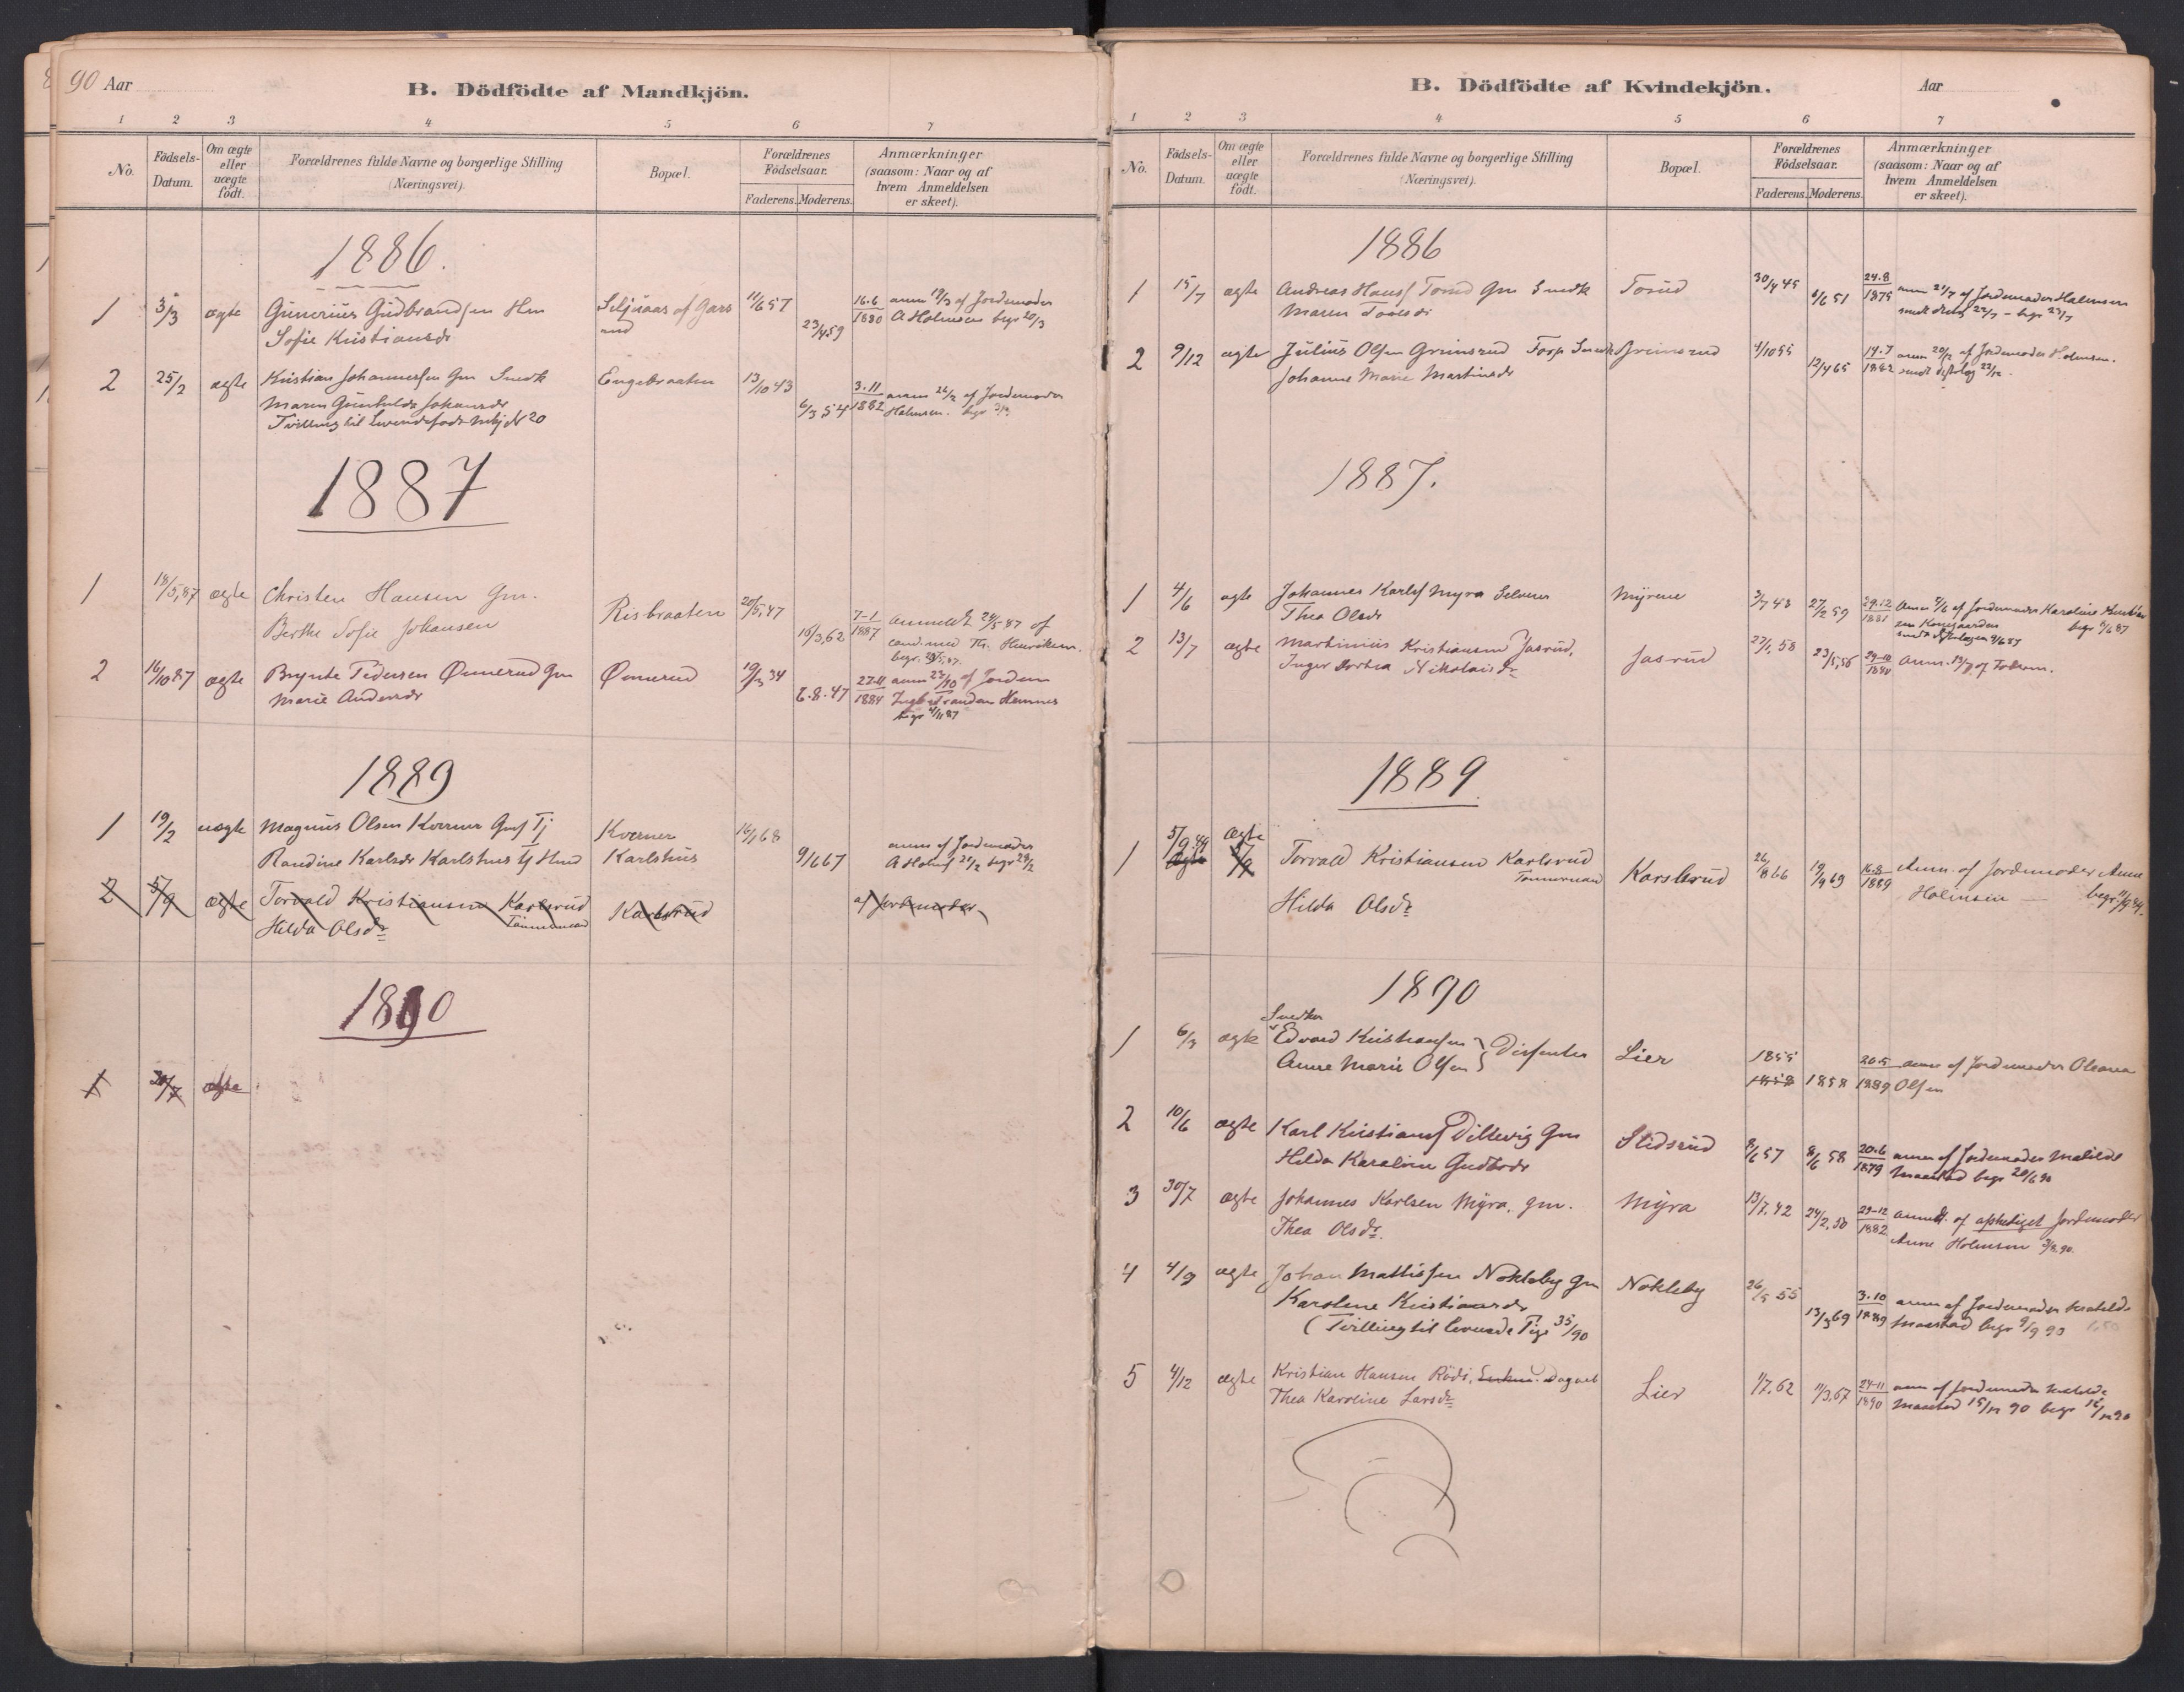 90 Aar
B. Dödfödte af Mandkjön.
1 2 3 4 5 6 7
No.
Födsels-
Datum.
Om ægte
eller
uægte
födt.
Forældrenes fulde Navne og borgerlige Stilling
(Næringsvei).
Bopæl.
Forældrenes
Födselsaar.
Faderens. Moderens.
Anmærkninger
(saasom: Naar og af
hvem Anmeldelsen
er skeet).
1886.
1 3/3 ægte Gunerius Gudbrandsen Hen 11/6 57 16.6 anm 19/3 af Jordemoder
Sofie Kristiansdr 23/4 59 1880 A Holmsen begr 20/3
2 25/2 ægte Kristian Johannessen Gm Snedk Engebraaten 13/10 43 3.11 anm 26/2 af Jordemoder
Maren Gunhilde Johansdr 6/3 54 1882 Holmsen. begr
Tvilling til Levendefødt Mkj № 20
1887
1 18/5,87 ægte Christen Hansen Gm. Risbraaten 20/5,47 7-1 anmeldt 24/5 87 af
Berthe Sofie Johansen 16/3,62 1887 cand. med Th.
begr.
2 16/10 87 ægte Brynte Pedersen Ømerud Gm Ømerud 19/3 34 27.11 anm 23/10 af Jordem
Marie Andersdr 6.8.47 1884 Hemnes
begr 4/11 87
1889
1 19/2 uægte Magnus Olsen Kverner Gsf Tj Kverner 16/1 68 anm af Jordemoder
Randine Karlsdr Karlshus Karlshus 9/6 67 A Holms 21/2 begr 24/2
2 5/9 ægte Torvald Kristiansen Karlsrud Karlsrud af Jordemoder
Tømmermand
Hilda Olsdr
1890
1 30/7 ægte
B. Dödfödte af Kvindekjön. Aar
1 2 3 4 5 6 7
No.
Födsels-
Datum.
Om ægte
eller
uægte
födt.
Forældrenes fulde Navne og borgerlige Stilling
(Næringsvei).
Bopæl.
Forældrenes
Födselsaar.
Faderens. Moderens.
Anmærkninger
(saasom: Naar og af
hvem Anmeldelsen
er skeet).
1886
1 15/7 ægte Andreas Hansf Torud Gm Snedk Torud 30/4 45 6/6 51 24.8 anm 21/7 af Jordemoder Holmsen
Maren 1875 22/7 - begr 23/7
2 9/12 ægte Julius Olsen Grimsrud Forp Snedk Grimsrud 4/10 55 12/4 65 14.7 anm 20/12 af Jordemoder Holmsen.
Johanne Marie Martinsdr 1882 22/12.
1887.
1 4/6 ægte Johannes Karlsf Myra Selveier Myrene 3/7 43 27/2 59 29.12 Anm af Jordemoder Karoline
Thea Olsdr 1881 begr 8/6 87
2 13/7 ægte Martinius Kristiansen Jasrud, Jasrud 27/1,58 23/5,56 24-10 anm. 13/7 af
Inger Dorthea Nikolaisdr 1880
1889
1 5/9.89 Ægte Torvald Kristiansen Karlsrud Karslsrud 26/8 66 19/9 69 16.8 Anm. af Jordemoder Anne
Tømmermand 1889 Holmsen — begr. 11/9 89.
Hilda Olsdr
1890
Snedker
1 6/3 ægte Edvard Kristiansen } Dissenter Lier 1855 20.5 anm af Jordemoder Oleana
Anne Marie Olsen 1858 1858 1889 Olsen
2 10/6 ægte Karl Kristiansf Dillevig Gm Slidsrud 8/6 57 8/6 58 20.6 anm af Jordemoder Matilde
Hilda Karoline Gudbrdr 1879 Maastad begr 20/6 90
3 30/7 ægte Johannes Karlsen Myra. gm. Myra 13/7.42 24/2.50 29-12 anmdt. af afskediget Jordemoder
Thea Olsdr. 1882. Anne Holmsen 3/8.90.
4 4/9 ægte Johan Mattissen Nokleby Gm Nokleby 26/5 55 13/3 69 3.10 anm af Jordemoder Matilde
Karoline Kristiansdr 1889 Maastad begr 9/9 90
(Tvilling til levende Pige 35/90
5 4/12 ægte Kristian Hansen Rödi, Dagarb Lier 1/7.62 11/3,67 24-11 anm af Jordemoder Matilde
Thea Karoline Larsdr 1890 Maastad 15/12 90 begr 16/12 90